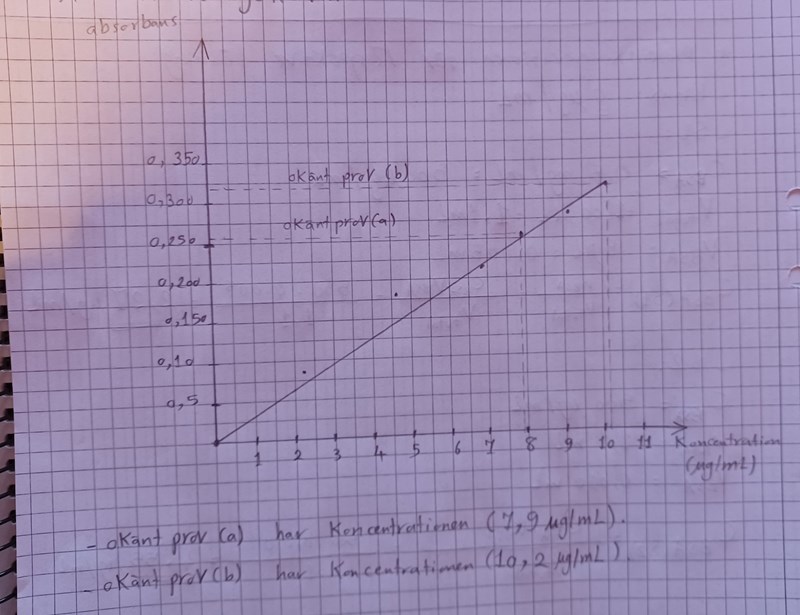 absorbans
0,350
okänt prov (b)
0,300
okänt prov (a)
0,250
0,200
0,150
0,10
0,5
1 2 3 4 5 6 7 8 9 10 11 Koncentration
(µg/mL)
- okänt prov (a) har Koncentrationen (7,9 µg/mL).
- okänt prov (b) har Koncentrationen (10,2 µg/mL).